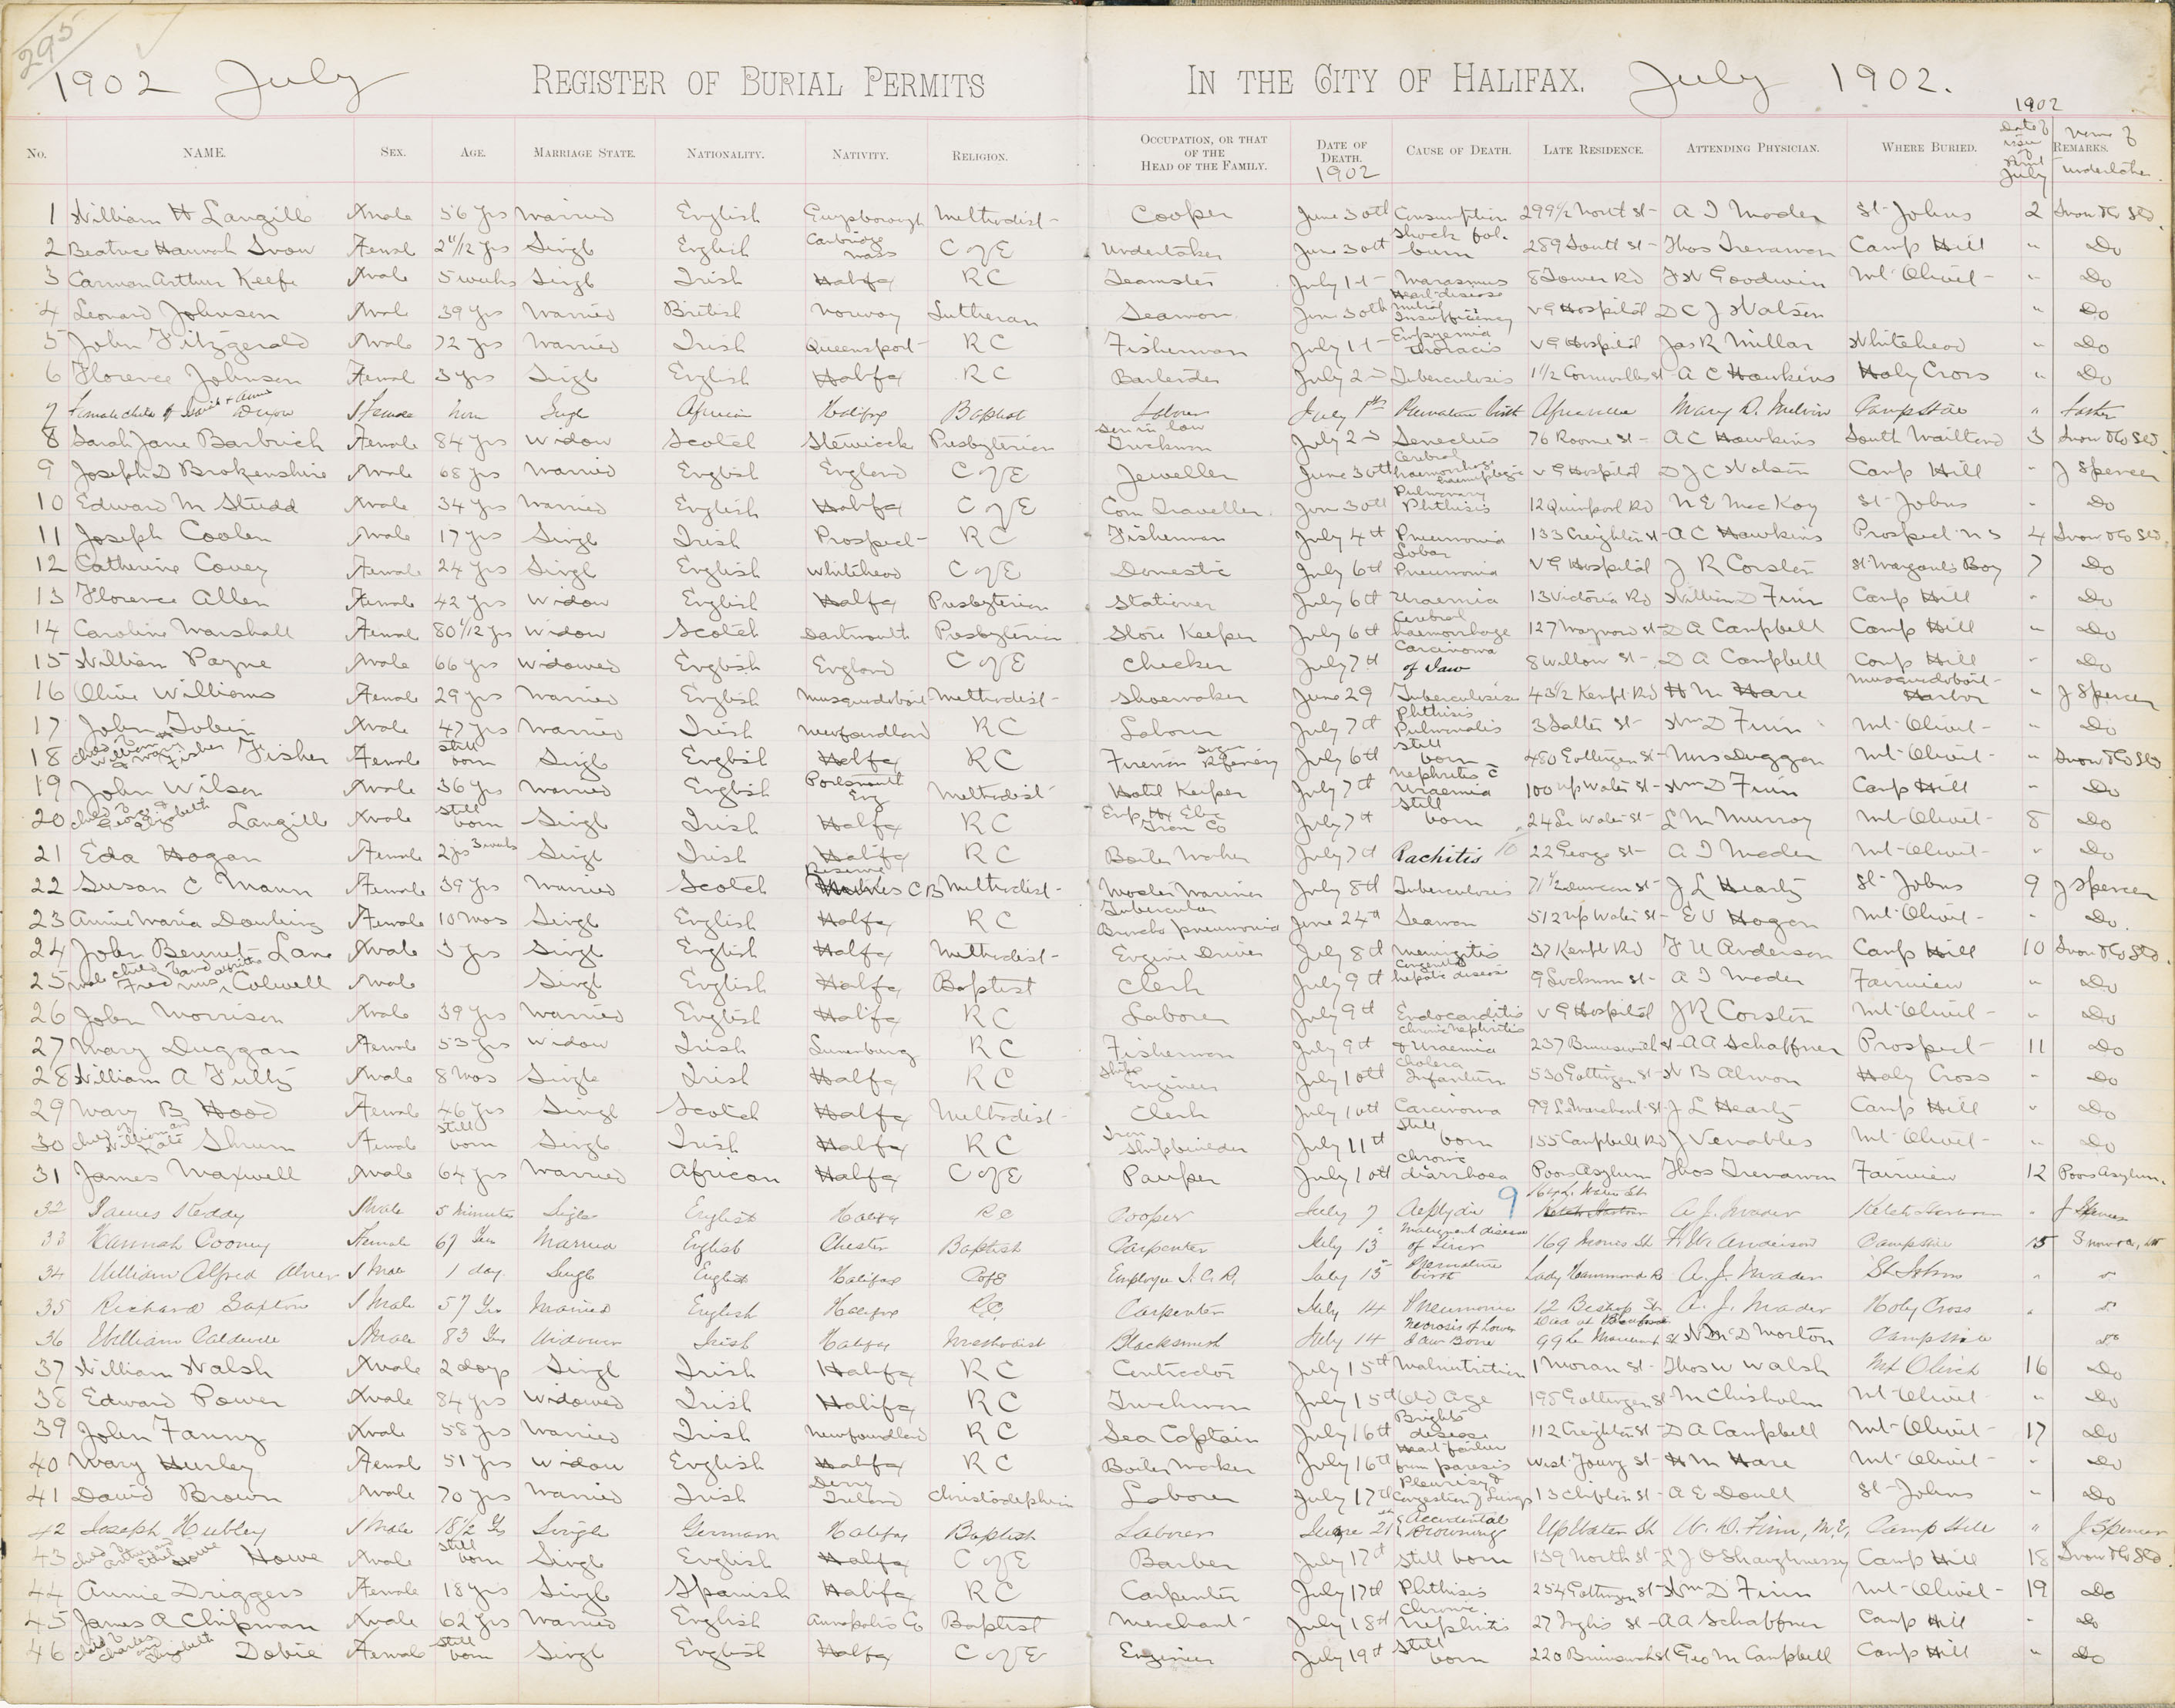 295
1902 July REGISTER OF BURIAL PERMITS IN THE CITY OF HALIFAX. July 1902.
1902
No. NAME. SEX. AGE. MARRIAGE STATE. NATIONALITY. NATIVITY. RELIGION. OCCUPATION, OR THAT OF THE HEAD OF THE FAMILY. DATE OF DEATH. 1902 CAUSE OF DEATH. LATE RESIDENCE. ATTENDING PHYSICIAN. WHERE BURIED. Date of issue of Permit July REMARKS. Name of Undertaker
1 William H Langille Male 56 yrs Married English Guysborough Methodist Cooper June 30th Consumption 299 1/2 North St A I Mader St Johns 2 Snow & Co Ltd
2 Beatrice Hannah Snow Female 2 11/12 yrs Single English Cambridge Mass C of E Undertaker June 30th Shock fol. burn 289 South St Thos Trenaman Camp Hill " Do
3 Carman Arthur Keefe Male 5 weeks Single Irish Halifax R C Teamster July 1st Marasmus 8 Tower Rd F W Goodwin Mt Olivet " Do
4 Leonard Johnson Male 39 yrs Married British Norway Lutheran Seaman June 30th Heart disease Mitral Insufficiency V G Hospital D C J Watson " Do
5 John Fitzgerald Male 72 yrs Married Irish Queensport R C Fisherman July 1st Empyemia thoracis V G Hospital Jas R Millar Whitehead " Do
6 Florence Johnson Female 3 yrs Single English Halifax R C Bartender July 2nd Tuberculosis 1 1/2 Cornwallis St A C Hawkins Holy Cross " Do
7 Female child of & Annie Dixon Female Single African Halifax Baptist Laborer July 1st Premature birth Africville Mary D. Melvin Camp Hill " Father
8 Sarah Jane Barbrick Female 84 yrs Widow Scotch Stewiacke Presbyterian Son in law Truckman July 2nd Senectus 76 Roome St A C Hawkins South Maitland 3 Snow & Co Ltd
9 Joseph D Brokenshire Male 68 yrs Married English England C of E Jeweller June 30th Cerebral haemorrhage haemiplegia V G Hospital D J C Watson Camp Hill " J Spencer
10 Edward M Studd Male 34 yrs Married English Halifax C of E Com Traveller June 30th Pulmonary Phthisis 12 Quinpool Rd N E MacKay St Johns " Do
11 Joseph Coolen Male 17 yrs Single Irish Prospect R C Fisherman July 4th Pneumonia 133 Creighton St A C Hawkins Prospect N S 4 Snow & Co Ltd
12 Catherine Covey Female 24 yrs Single English Whitehead C of E Domestic July 6th Lobar Pneumonia V G Hospital J R Corston St Margarets Bay 7 Do
13 Florence Allen Female 42 yrs Widow English Halifax Presbyterian Stationer July 6th Uraemia 13 Victoria Rd William D Finn Camp Hill " Do
14 Caroline Marshall Female 80 1/12 yrs Widow Scotch Dartmouth Presbyterian Store Keeper July 6th Cerebral haemorrhage 127 Maynard St D A Campbell Camp Hill " Do
15 William Payne Male 66 yrs Widowed English England C of E Checker July 7th Carcinoma of Jaw 8 Willow St D A Campbell Camp Hill " Do
16 Olive Williams Female 29 yrs Married English Musquodoboit Methodist Shoemaker June 29 Tuberculosis 43 1/2 Kempt Rd H M Hare Musquodoboit Harbor " J Spencer
17 John Tobin Male 47 yrs Married Irish Newfoundland R C Laborer July 7th Phthisis Pulmonalis 3 Salter St Wm D Finn Mt Olivet " Do
18 Child of William & Fisher Female Still born Single English Halifax R C Fireman Sugar Refinery July 6th Still born 480 Gottingen St Mrs Duggan Mt Olivet " Snow & Co Ltd
19 John Wilson Male 36 yrs Married English Portsmouth Eng Methodist Hotel Keeper July 7th Nephritis c Uraemia 100 Up Water St Wm D Finn Camp Hill " Do
20 Child of George & Elizabeth Langille Male Still born Single Irish Halifax R C Emp Hx Elec Tram Co July 7th Still born 24 Lr Water St L M Murray Mt Olivet 8 Do
21 Eda Hogan Female 2 yrs 3 weeks Single Irish Halifax R C Boiler Maker July 7th Rachitis 22 George St A I Mader Mt Olivet " Do
22 Susan C Mann Female 39 yrs Married Scotch Reserve Mines C B Methodist Master Mariner July 8th Tuberculosis 71 1/2 Duncan St J L Hearty St Johns 9 J Spencer
23 Annie Maria Dowling Female 10 Mos Single English Halifax R C Tubercular Broncho pneumonia June 24th Seaman 512 Up Water St E V Hogan Mt Olivet " Do
24 John Bennet Lane Male 3 yrs Single English Halifax Methodist Engine Driver July 8th Meningitis 37 Kempt Rd F U Anderson Camp Hill 10 Snow & Co Ltd
25 Male child Fred Colwell Male Single English Halifax Baptist Clerk July 9th Congenital hepatic disease 9 Lockman St A I Mader Fairview " Do
26 John Morrison Male 39 yrs Married English Halifax R C Laborer July 9th Endocarditis V G Hospital J R Corston Mt Olivet " Do
27 Mary Duggan Female 53 yrs Widow Irish Lunenburg R C Fisherman July 9th Chronic Nephritis & Uraemia 237 Brunswick St A A Schaffner Prospect 11 Do
28 William A Tully Male 8 Mos Single Irish Halifax R C Ships Engineer July 10th Cholera Infantum 530 Gottingen St W B Almon Holy Cross " Do
29 Mary B Hood Female 46 yrs Single Scotch Halifax Methodist Clerk July 10th Carcinoma 99 LeMarchant St J L Hearty Camp Hill " Do
30 Child of William and Kate Shrum Female Still born Single Irish Halifax R C Iron Shipbuilder July 11th Still born 155 Campbell Rd J Venables Mt Olivet " Do
31 James Maxwell Male 64 yrs Married African Halifax C of E Pauper July 10th Chronic diarrhoea Poors Asylum Thos Trenaman Fairview 12 Poors Asylum
32 James Steddy Male 5 Minutes Single English Halifax R C Cooper July 9 Asphyxia Water St A. J. Mader Ketch Harbour " J Spencer
33 Hannah Cooney Female 67 Yrs Married English Chester Baptist Carpenter July 13 Malignant disease of Liver 169 Morris St F. W. Anderson Camp Hill 15 Snow & Co, Ltd
34 William Alfred Male 1 day Single English Halifax C of E Employee I. C. R. July 13 Premature birth Lady Hammond R A. J. Mader St Johns " "
35 Richard Saxton Male 57 Yrs Married English Halifax R C Carpenter July 14 Pneumonia 12 Bishop St A. J. Mader Holy Cross " "
36 William Caldwell Male 83 Yrs Widower Irish Halifax Methodist Blacksmith July 14 Necrosis of Lower Jaw Bone 99 Le Marchant St Wm D Morton Camp Hill Do
37 William Walsh Male 2 days Single Irish Halifax R C Contractor July 15th Malnutrition 1 Moran St Thos W Walsh Mt Olivet 16 Do
38 Edward Power Male 84 yrs Widowed Irish Halifax R C Truckman July 15th Old Age 195 Gottingen St M Chisholm Mt Olivet " Do
39 John Fanny Male 58 yrs Married Irish Newfoundland R C Sea Captain July 16th Brights disease 112 Creighton St D A Campbell Mt Olivet 17 Do
40 Mary Hurley Female 51 yrs Widow English Halifax R C Boiler Maker July 16th Heart failure from paresis West Young St H M Hare Mt Olivet " Do
41 David Brown Male 70 yrs Married Irish Derry Ireland Christadelphian Laborer July 17th Pleurisy & Congestion of Lungs 13 Clifton St A E Doull St Johns " Do
42 Joseph Hubley Male 18 1/2 Yrs Single German Halifax Baptist Laborer June 21 Accidental Drowning Up Water St W. D. Finn, M.E. Camp Hill " J Spencer
43 Child of Arthur and Howe Howe Male Still born Single English Halifax C of E Barber July 17th Still born 139 North St E J O'Shaughnessy Camp Hill 18 Snow & Co Ltd
44 Annie Driggers Female 18 yrs Single Spanish Halifax R C Carpenter July 17th Phthisis 254 Gottingen St Wm D Finn Mt Olivet 19 Do
45 James A Chipman Male 62 yrs Married English Annapolis Co Baptist Merchant July 18th Chronic Nephritis 27 Inglis St A A Schaffner Camp Hill " Do
46 Child of Charles and Elizabeth Dobie Female Still born Single English Halifax C of E Engineer July 19th Still born 220 Brunswick St Geo M Campbell Camp Hill " Do